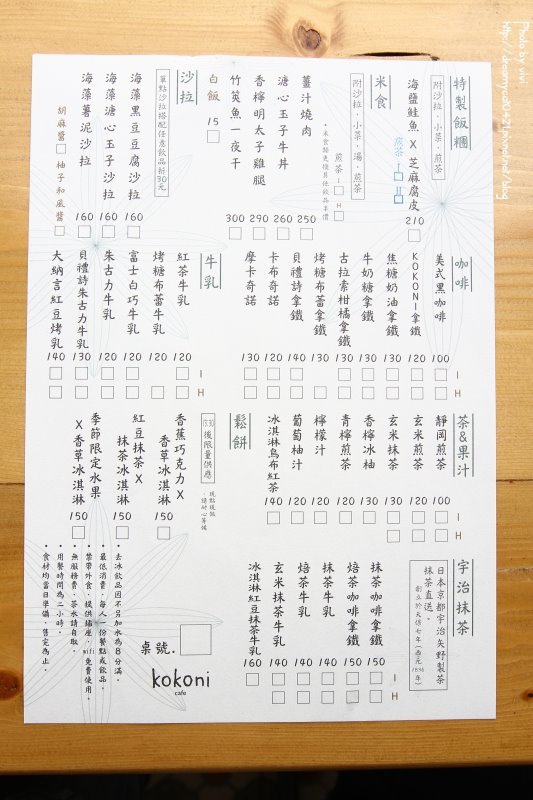 特製飯糰
附沙拉‧小菜‧煎茶
海鹽鮭魚 X 芝麻腐皮
210
煎茶 I H
米食
附沙拉‧小菜‧湯‧煎茶
‧米食類更換其他飲品半價
煎茶 I H
薑汁燒肉
250
溏心玉子牛丼
260
香檸明太子雞腿
290
竹筴魚一夜干
300
白飯 15
沙拉
單點沙拉搭配任意飲品折30元
海藻黑豆豆腐沙拉
160
海藻溏心玉子沙拉
160
海藻薯泥沙拉
160
胡麻醬 柚子和風醬
咖啡
美式黑咖啡
100
KOKONI拿鐵
120
焦糖奶油拿鐵
130
牛奶糖拿鐵
130
古拉索柑橘拿鐵
130
烤糖布蕾拿鐵
130
貝禮詩拿鐵
140
卡布奇諾
120
摩卡奇諾
130
I
H
牛乳
紅茶牛乳
120
烤糖布蕾牛乳
120
富士白巧牛乳
120
朱古力牛乳
120
貝禮詩朱古力牛乳
130
大納言紅豆烤乳
140
I
H
茶&果汁
靜岡煎茶
100
玄米煎茶
120
玄米抹茶
130
香檸冰柚
130
青檸煎茶
120
檸檬汁
120
葡萄柚汁
120
冰淇淋烏布紅茶
140
I
H
鬆餅
13:30後限量供應
現點現做
請耐心等候
香蕉巧克力X
香草冰淇淋
150
紅豆抹茶X
抹茶冰淇淋
150
季節限定水果
X 香草冰淇淋
150
宇治抹茶
日本京都宇治矢野製茶
抹茶直送。
創立於天保七年(西元1836年)
抹茶咖啡拿鐵
150
焙茶咖啡拿鐵
150
抹茶牛乳
140
焙茶牛乳
140
玄米抹茶牛乳
140
冰淇淋紅豆抹茶牛乳
160
I
H
桌號.
kokoni
cafe
‧去冰飲品因不另加水為8分滿。
‧最低消費,每人一份餐點或飲品。
‧禁帶外食,提供插座,wifi免費使用。
‧無服務費,茶水請自取。
‧用餐時間為二小時。
‧食材均當日準備,售完為止。
Photo by vivi